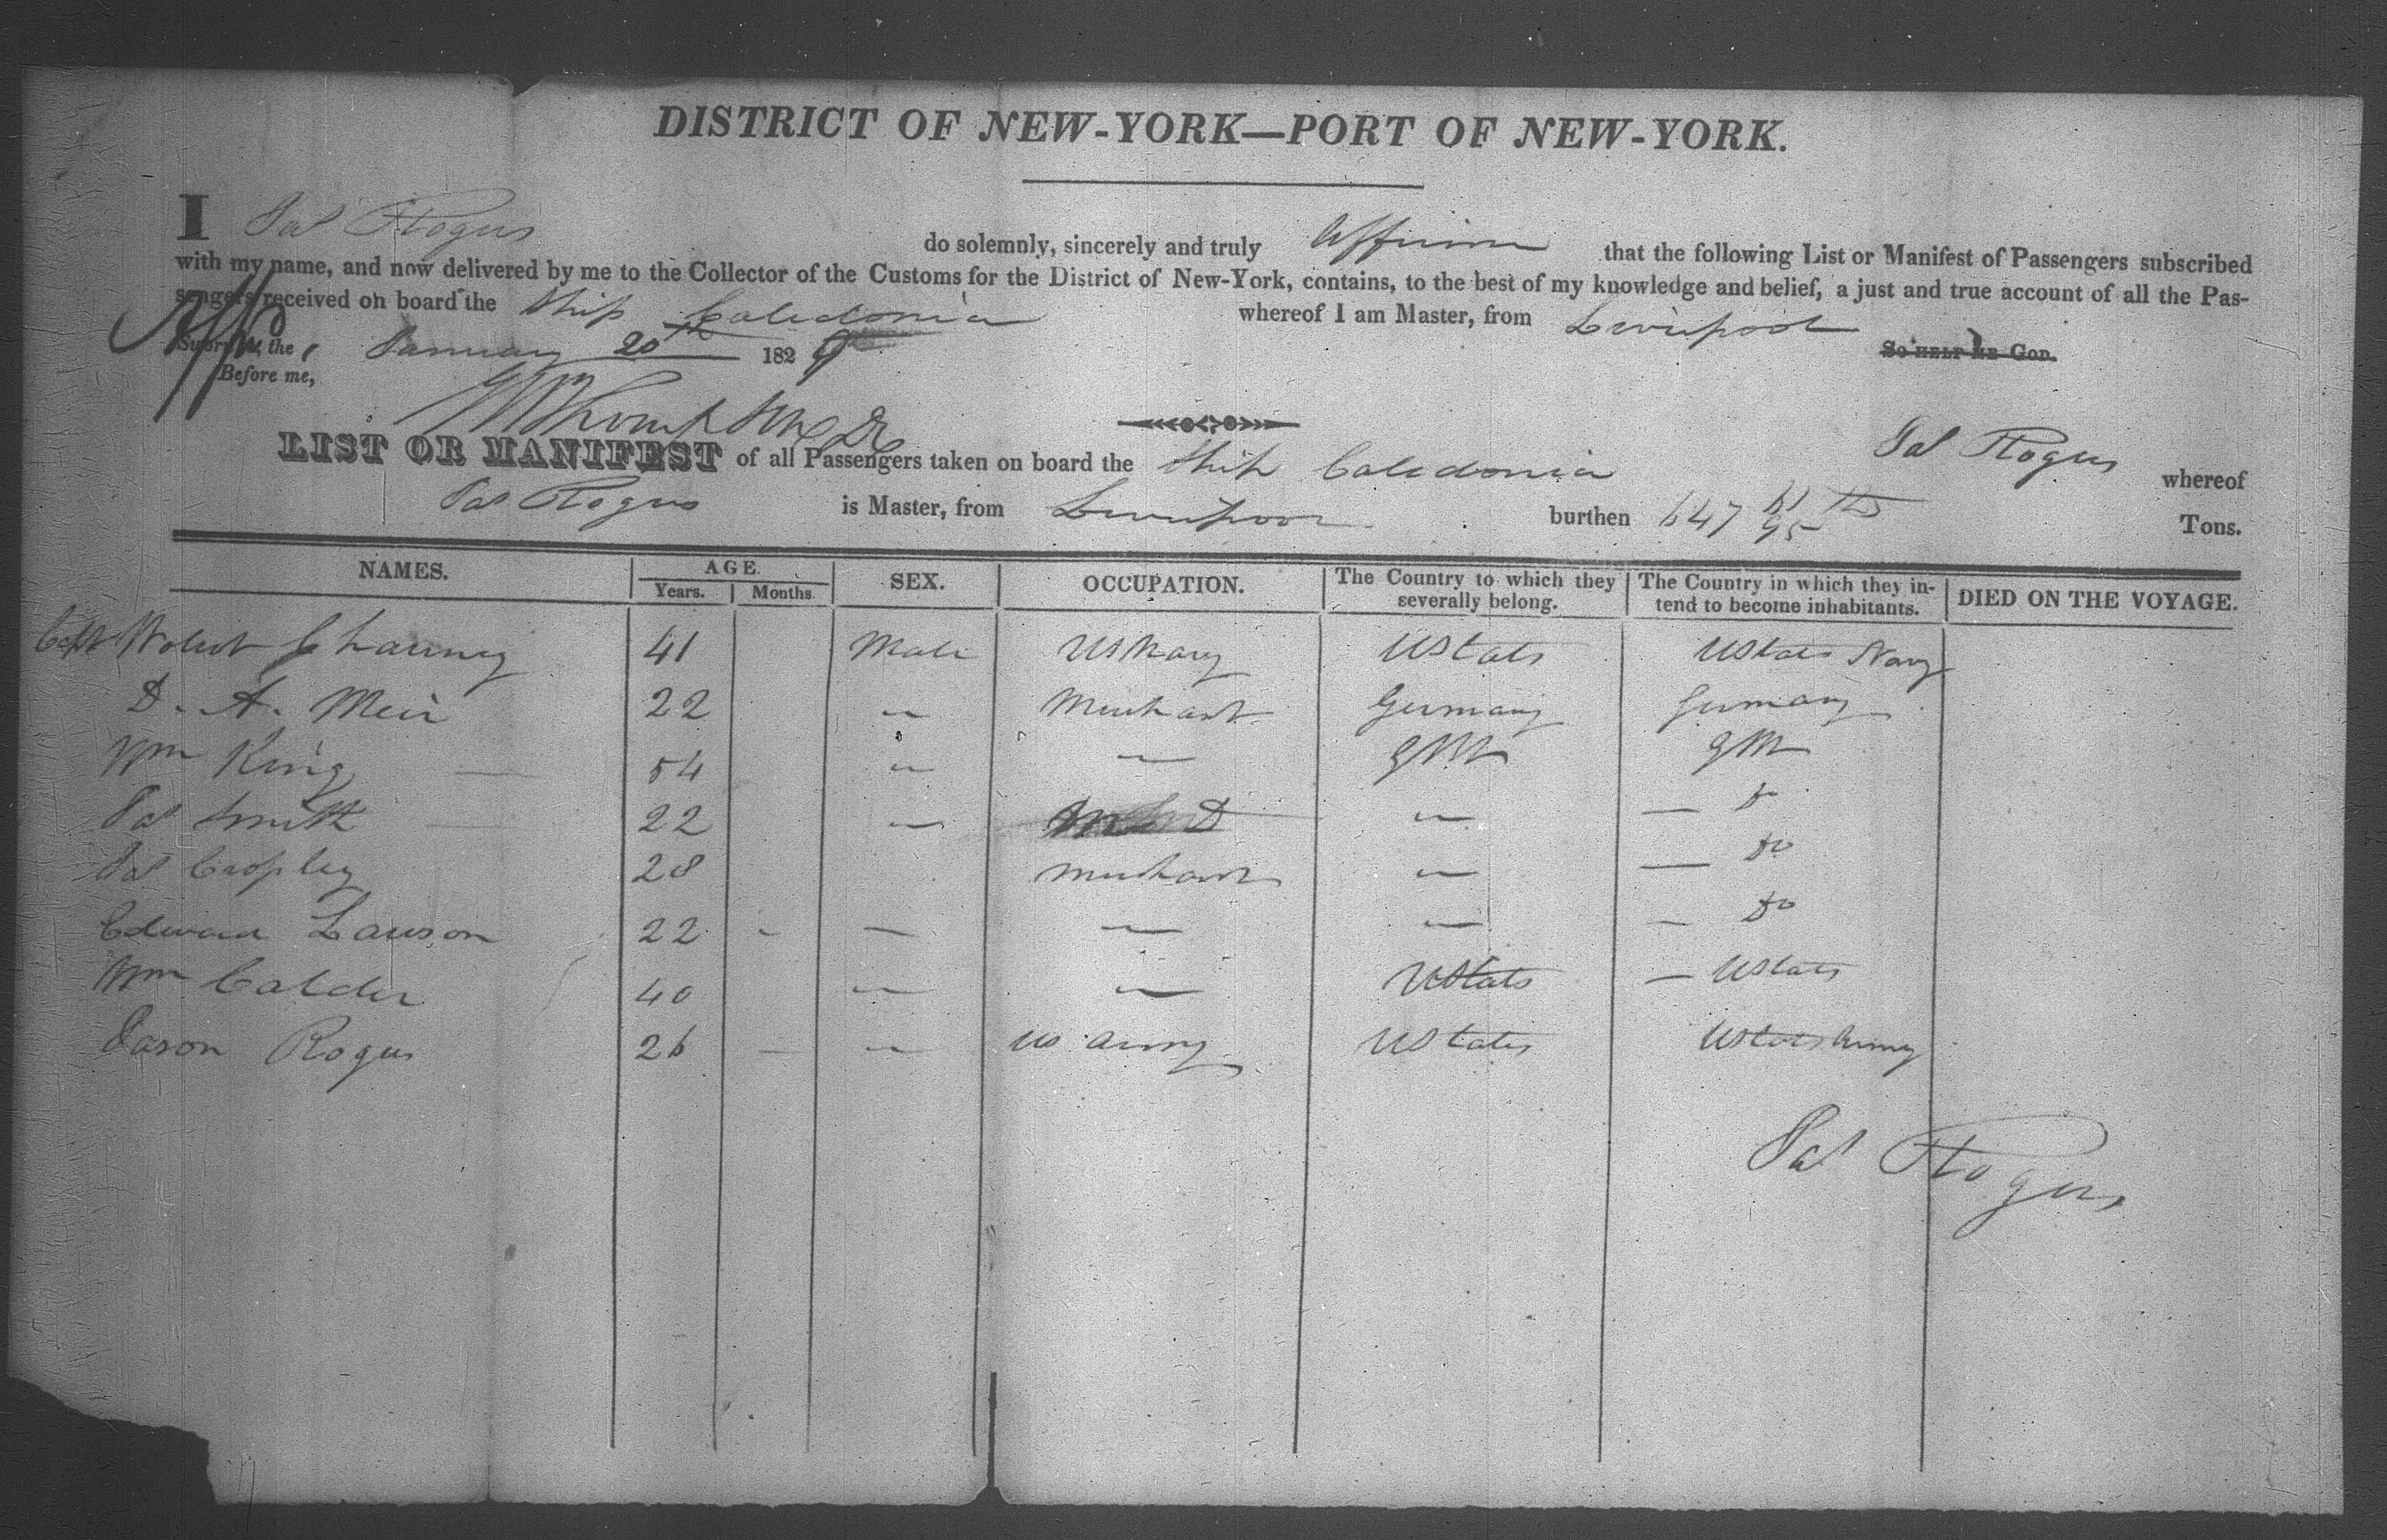 DISTRICT OF NEW-YORK—PORT OF NEW-YORK.
I Jas Rogers do solemnly, sincerely and truly affirm that the following List or Manifest of Passengers subscribed
with my name, and now delivered by me to the Collector of the Customs for the District of New-York, contains, to the best of my knowledge and belief, a just and true account of all the Pas-
sengers received on board the Ship Caledonia whereof I am Master, from Liverpool
Sworn the January 20th 1829 So help me God.
Before me,
LIST OR MANIFEST of all Passengers taken on board the Ship Caledonia Jas Rogers whereof
Jas Rogers is Master, from Liverpool burthen 647 61/95 ths Tons.
NAMES. AGE. Years. Months. SEX. OCCUPATION. The Country to which they severally belong. The Country in which they in-tend to become inhabitants. DIED ON THE VOYAGE.
Capt Robert Chauncy 41 Male US Navy UStats UStats Navy
D. A. Meir 22 " Merchant Germany Germany
Wm King 54 " " GBt GBt
Jas Smith 22 " " — Do
Jas Cropley 28 Merchant " — Do
Edward Lawson 22 - — — — — Do
Wm Calder 40 " — UStats — UStats
Jason Rogers 26 — " US Army UStates UStats Army
Jas Rogers